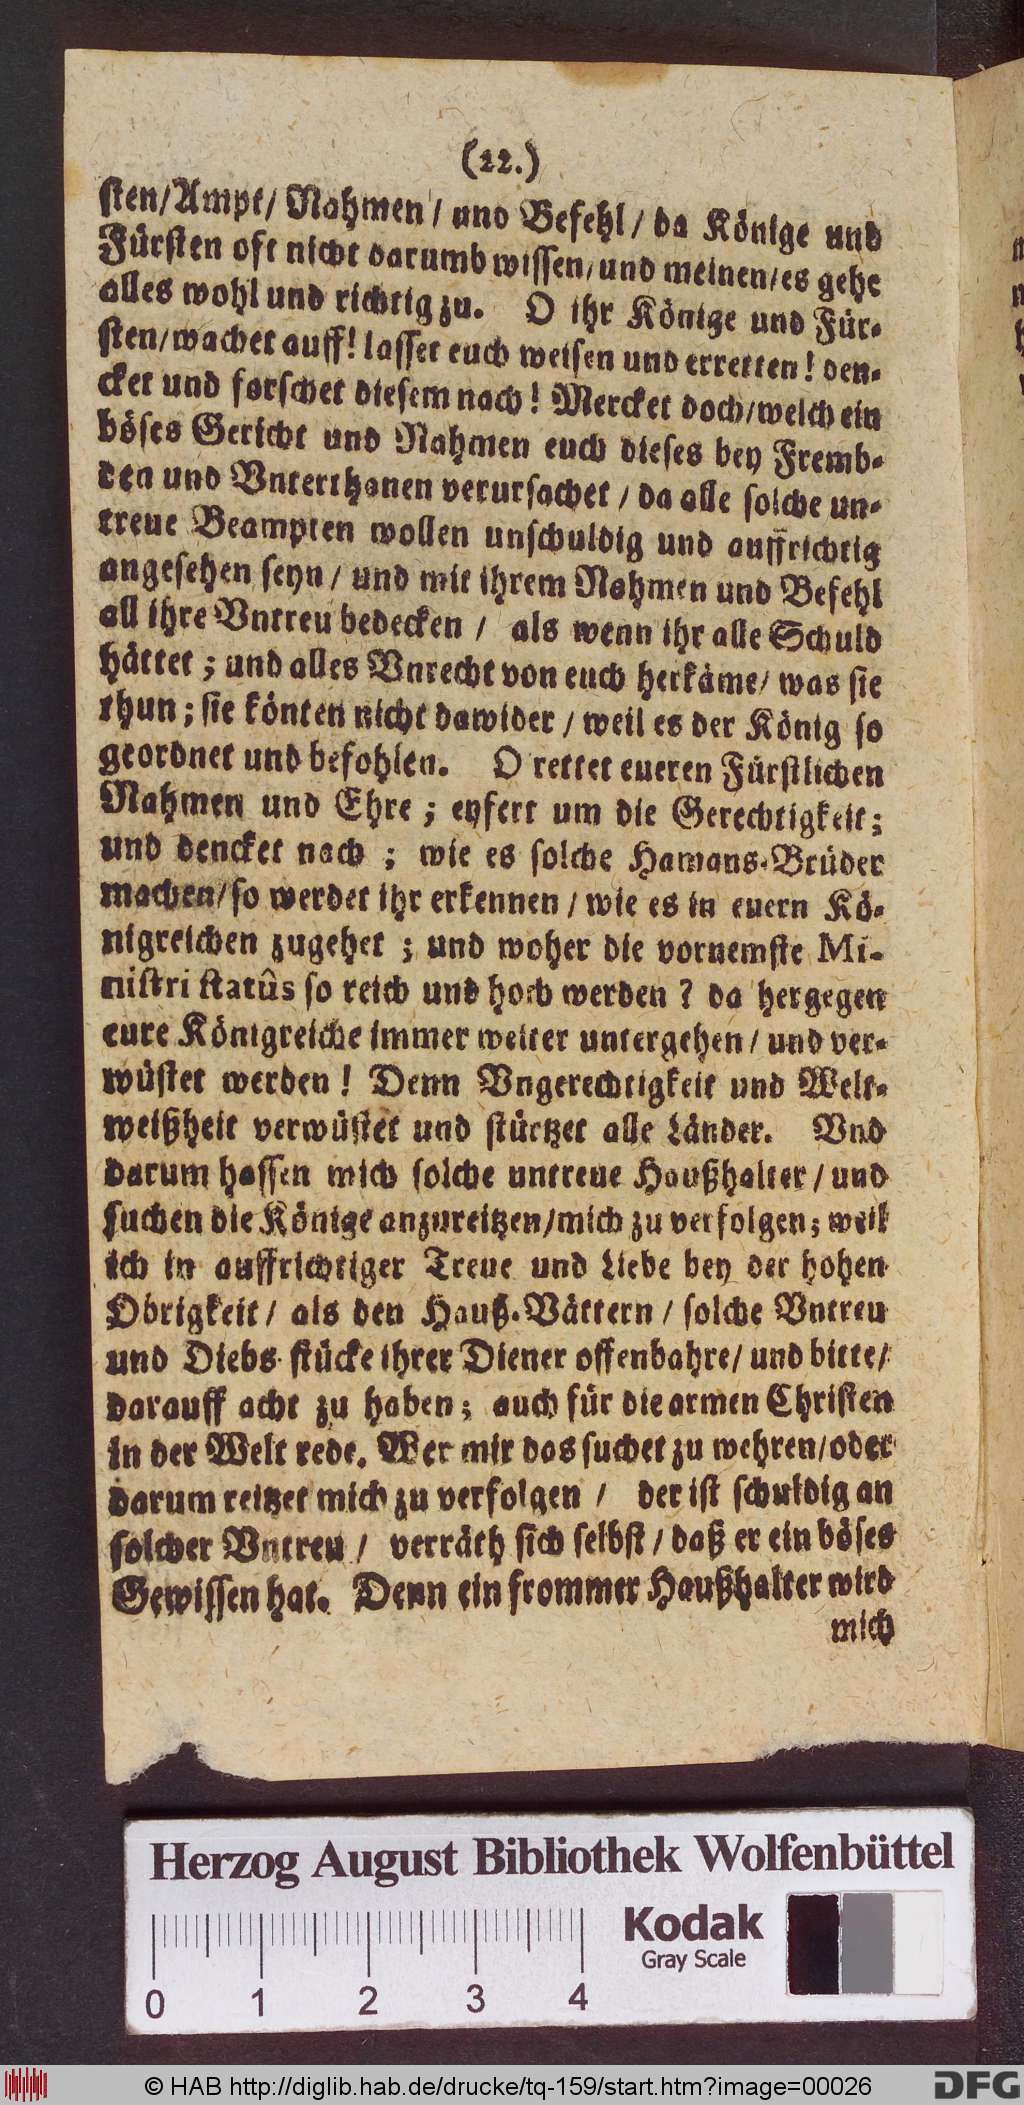 (22.)
sten/Ampt/ Nahmen / und Befehl / da Könige und
Fürsten oft nicht darumb wissen/und meinen/es gehe
alles wohl und richtig zu. O ihr Könige und Für-
sten/wachet auff! lasset euch weisen und erretten! den-
cket und forschet diesem nach! Mercket doch/welch ein
böses Gericht und Nahmen euch dieses bey Fremb-
den und Vnterthanen verursachet / da alle solche un-
treue Beampten wollen unschuldig und auffrichtig
angesehen seyn / und mit ihrem Nahmen und Befehl
all ihre Vntreu bedecken / als wenn ihr alle Schuld
hättet ; und alles Vnrecht von euch herkäme/ was sie
thun ; sie könten nicht dawider / weil es der König so
geordnet und befohlen. O rettet eueren Fürstlichen
Nahmen und Ehre ; eyfert um die Gerechtigkeit;
und dencket nach ; wie es solche Hamans-Brüder
machen/so werdet ihr erkennen / wie es in euern Kö-
nigreichen zugehet ; und woher die vornemste Mi-
nistri statûs so reich und hoch werden ? da hergegen
eure Königreiche immer weiter untergehen / und ver-
wüstet werden ! Denn Vngerechtigkeit und Welt-
weißheit verwüstet und stürtzet alle Länder. Vnd
darum hassen mich solche untreue Haußhalter / und
suchen die Könige anzureitzen/mich zu verfolgen; weil
ich in auffrichtiger Treue und Liebe bey der hohen
Obrigkeit / als den Hauß-Vättern / solche Vntreu
und Diebs-stücke ihrer Diener offenbahre/ und bitte/
darauff acht zu haben; auch für die armen Christen
in der Welt rede. Wer mir das suchet zu wehren/oder
darum reitzet mich zu verfolgen / der ist schuldig an
solcher Vntreu / verräth sich selbst / daß er ein böses
Gewissen hat. Denn ein frommer Haußhalter wird
mich
Herzog August Bibliothek Wolfenbüttel
Kodak
Gray Scale
0 1 2 3 4
© HAB http://diglib.hab.de/drucke/tq-159/start.htm?image=00026
DFG